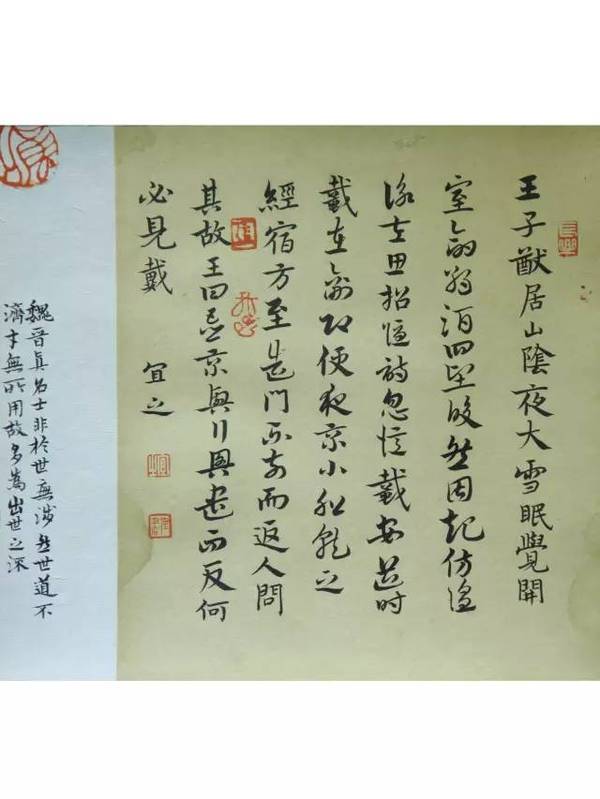 王子猷居山陰夜大雪眠覺開
室命酌酒四望皎然因起仿偟
詠左思招隱詩忽憶戴安道時
戴在剡即便夜乘小船就之
經宿方至造門不前而返人問
其故王曰吾乘興行興盡而反何
必見戴 宜之
魏晉真名士非於世無涉然世道不
濟才無所用故多為出世之深